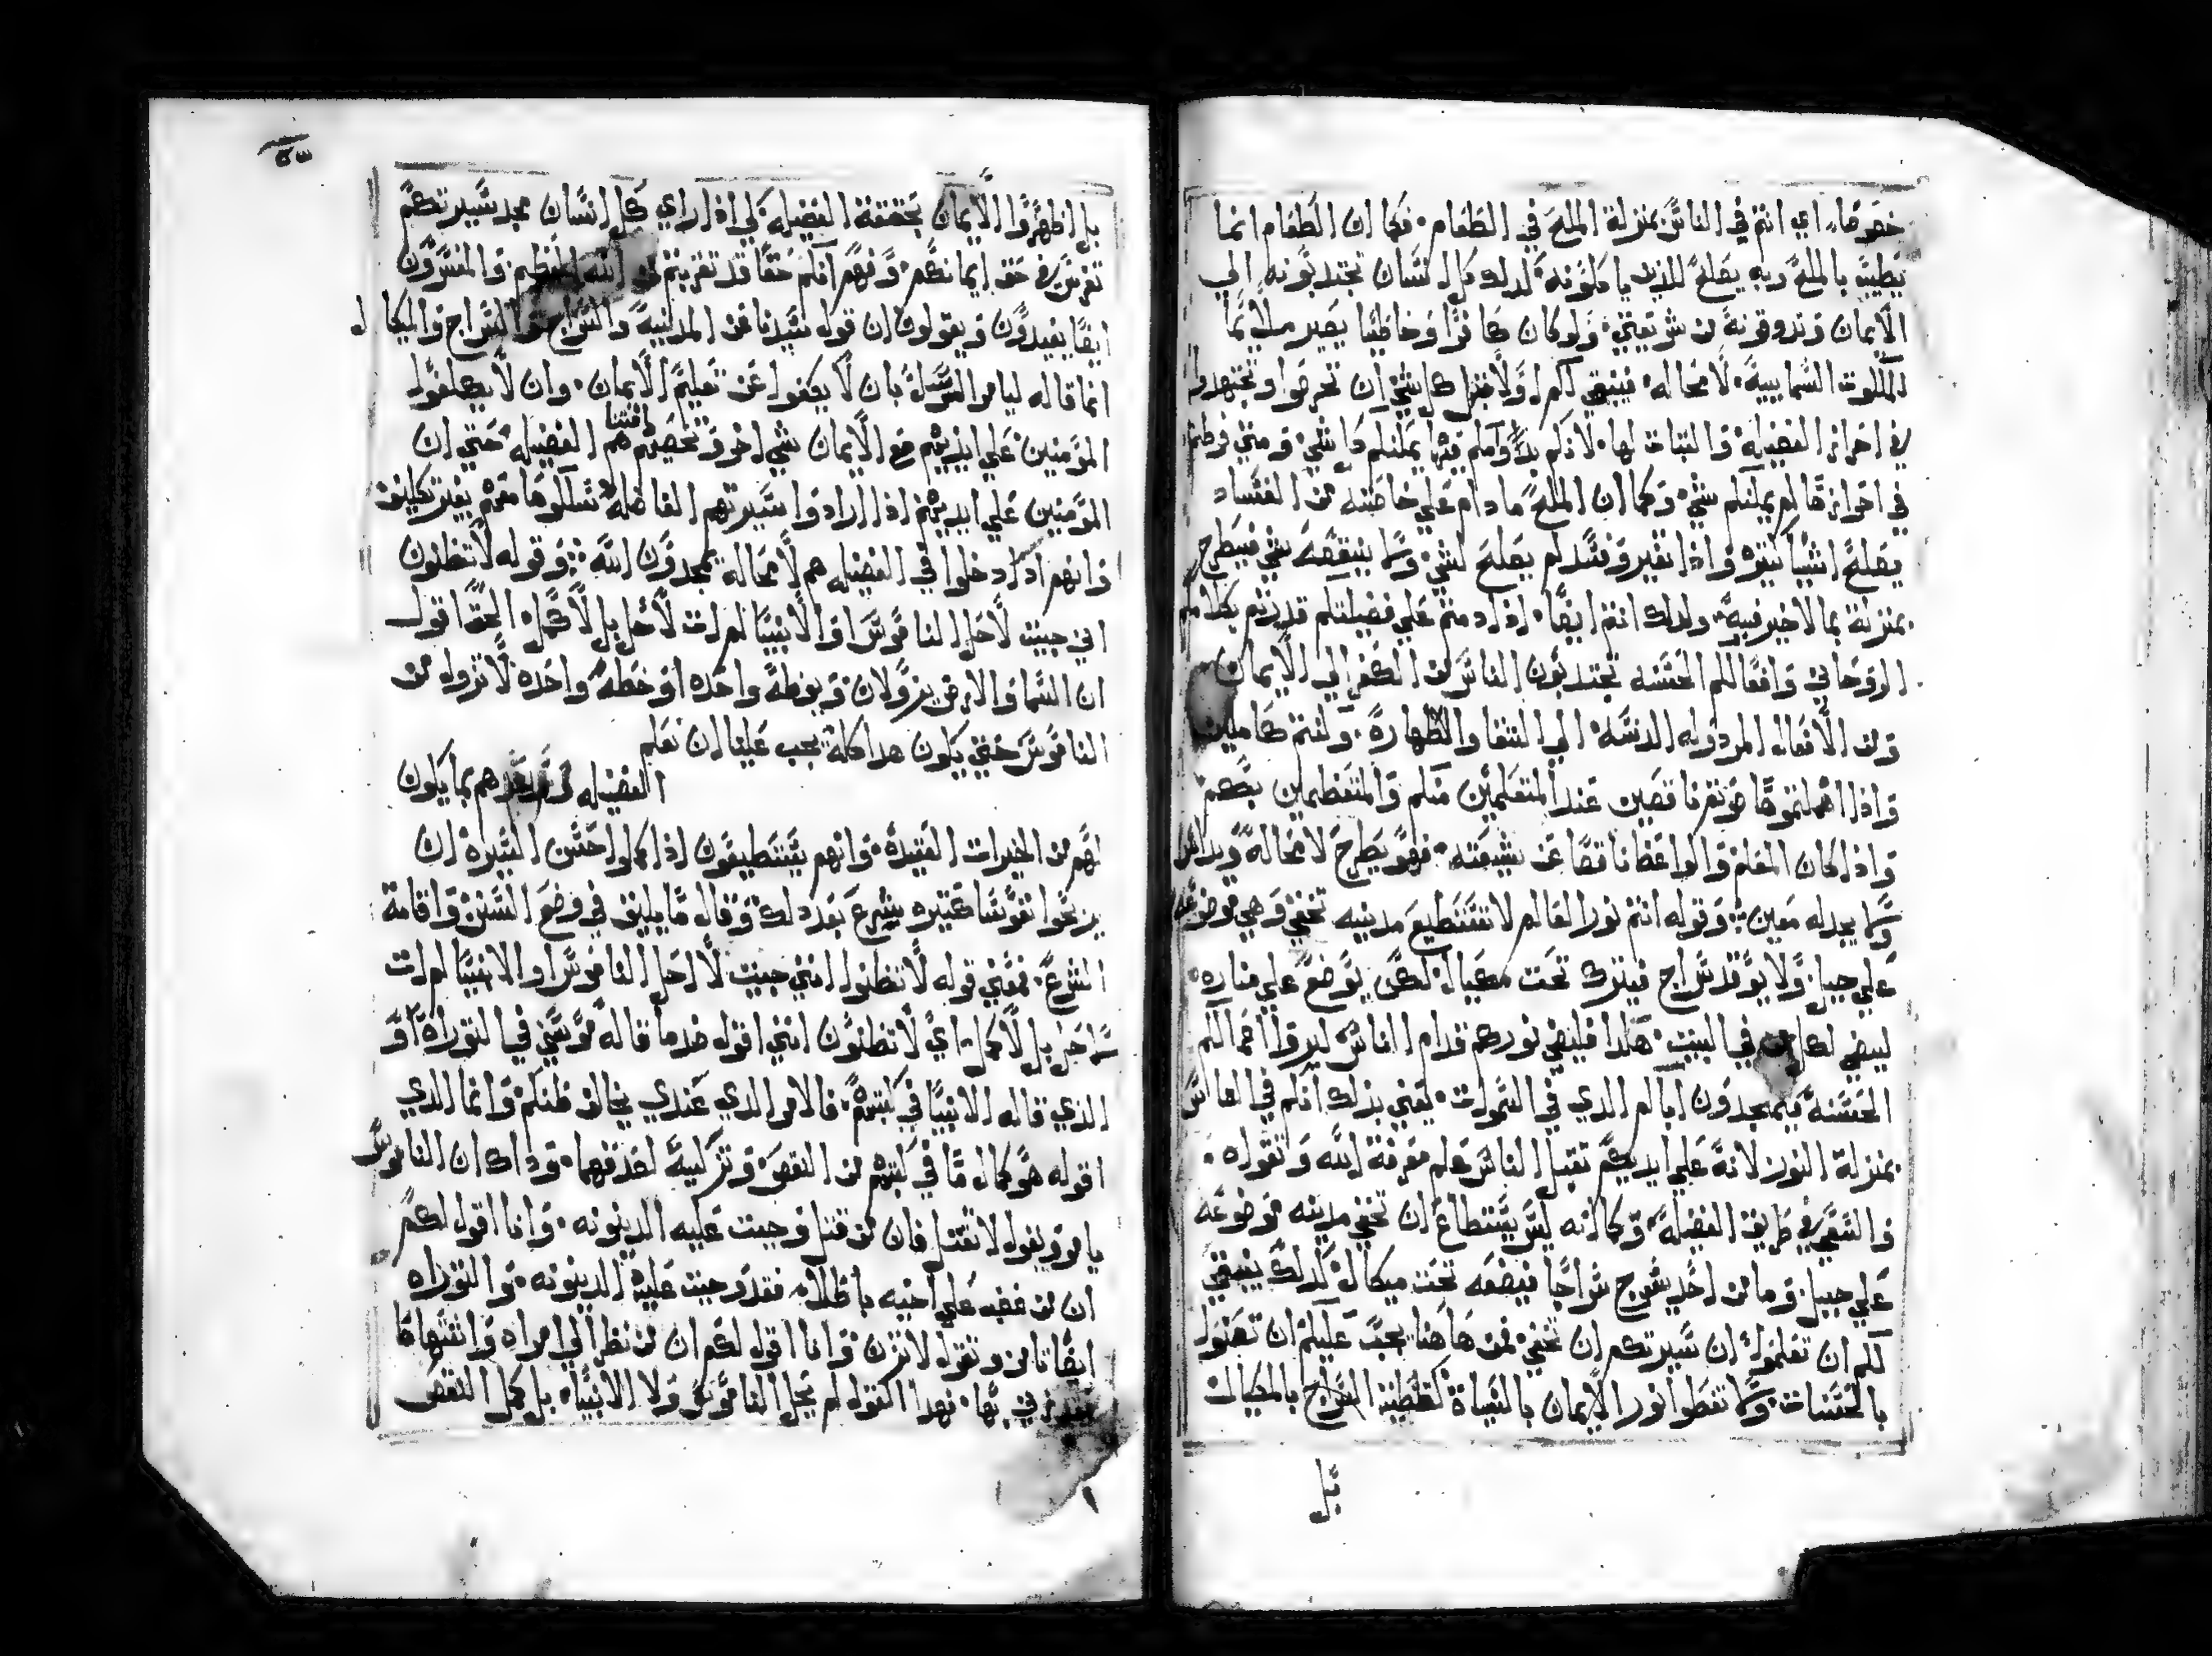 خصوصًا، اي انتم في الناس بمنزلة الملح في الطعام. فكما ان الطعام انما
يطيب بالملح وبه يصلح للذين ياكلونه كذلك كل انسان تجتدبونه الي
الايمان وتدوقونه من شر يعتني. ولو كان كافرًا وخاطيًا يصير ملايمًا
لملكوت السماييه لا محاله. فينبغي لكم اولًا قبل كل شي ان تحرصوا وتجتهدوا
في احراز الفضيله والثبات لها. لانكم يمكنكم كل شي ومتي فرطتم
في احرازها لم يمكنكم شي. وكما ان الملح ما دام علي خاصته من الفساد
يصلح اشيا كثيره واذا تغير وفسد لم يصلح لشي ولا ينقصه شي فيطرح
بمنزلة ما لا خير فيه. ولدلك انتم ايضًا. اذا دمتم علي فضيلتكم قدرتم بكلامكم
الروحاني وافعالكم الحسنه تجتدبون الناس من الكفر الي الايمان
ومن الافعال المردوله الدنسه. الي النقا والطهارة. ولنتم كاملين
واذا اهملتموها صرتم ناقصين عند المتعلمين منكم والمتعظمين بكم
واذا كان المعلم والواعظ ناقصًا عن شيعته. فهو يطرح لا محاله ويداس
ولا يجد له معين: وقوله انتم نور العالم لا تستطيع مدينه تخفي وهي موضوعه
علي جبل. ولا يوقد سراج فيترك تحت مكيال. لكن يوضع علي مناره
ليضي لكل من في البيت. هكدا فليضي نوركم قدام الناس ليروا اعمالكم
الحسنه فيمجدون اباكم الدي في السموات. يعني بدلك انكم في الناس
بمنزلة النور لانه علي ايديكم تقبل الناس علم معرفة الله وتقواه.
والسعي في طريق الفضيله. وكما انه ليس يستطاع ان تخفي مدينه موضوعه
علي جبل. وما من احد يسرج سراجًا فيضعه تحت ميكال. كدلك ينبغي
لكم ان تعلموا. ان سيرتكم لن تخفي. فمن هاهنا يجب عليكم ان تعتنوا
بالحسنات. ولا تغطوا نور الايمان بالسياة كتغطية السراج بالمكيال
بل
بل اظهروا الايمان بحقيقة الفضيله لكي اذا راي كل انسان مجد سيرتكم
تفرس في حق ايمانكم. وفهم انكم حقًا قد تقربتم من الله العظيم. والمفسرون
ايضًا يفيدون ويقولون ان قول سيدنا عن المدينه والسراج والميكال
انما قاله ليامر الرسل بان لا يكفوا عن تعليم الايمان. وان لا يكلفوا
المومنين علي ايديهم مع الايمان شي اخر وتحصيلهم اقتنا الفضيله حتي ان
المومنين علي ايديهم اذا ارادوا سيرتهم الفاضله سالوها معهم بغير تكليف
وانهم اذا دخلوا في الفضيله هم لا محاله يمجدون الله: وقوله لا تظنون
اني جيت لاحل الناموس او الانبيا لم ات لاحل بل لاكمل. الحق اقول
ان السما والارض يزولان ونقطة واحده او خطه واحده لا تزول من
الناموس حتي يكون هدا كله. يجب علينا ان نعلم
الفضيله هم بما يكون
لهم من الخيرات العتيده. وانهم يستطيعون اذا كملوا حسن السيره ان
يربحوا نفوسًا كثيره شرع بعد دلك وقال ما يليق في وضع السنن واقامة
الشرع. فمعني قوله لا تظنوا انني جيت لاحل الناموس او الانبيا لم ات
لاحل بل لاكمل. اي لا تظنون انني اقول ضد ما قاله موسي في التوراة او
الدي قاله الانبيا في كتبهم. فالامر الدي عندي يخالف ظنكم. وانما الدي
اقوله هو كمال ما في كتبهم من النقص. وداك ان الناموس
يامر ويقول لا تقتل فان من قتل وجبت عليه الدينونه. وانا اقول لكم
ان من غضب علي اخيه باطلًا. فقد وجبت عليه الدينونه. والتوراه
ايضًا تامر وتقول لا تزن وانا اقول لكم ان من نظر الي امراه واشتهاها
فقد زني بها. فهدا القول لم يحل الناموس ولا الانبيا. بل كمل النقص